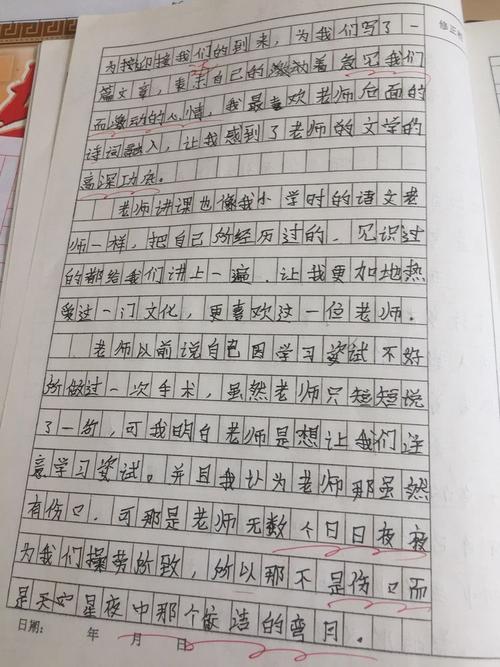 为接迎接我们的到来，为我们写了一
篇文章，表示自己的激动着急见我们
而激动的心情，我最喜欢老师后面的
诗词融入，让我感到了老师的文学的
高深功底。
老师讲课也像我小学时的语文老
师一样，把自己的经历过的，见识过
的都给我们讲上一遍，让我更加地热
爱过一门文化，更喜欢过一位老师。
老师以前说自己因学习姿试不好
所做过一次手术，虽然老师只短短说
了一句，可我明白老师是想让我们注
意学习姿试。并且我认为老师那虽然
有伤口，可那是老师无数个日日夜夜
为我们操劳所致，所以那不是伤口而
是天空星夜中那个皎洁的弯月。
日期： 年 月 日
修正